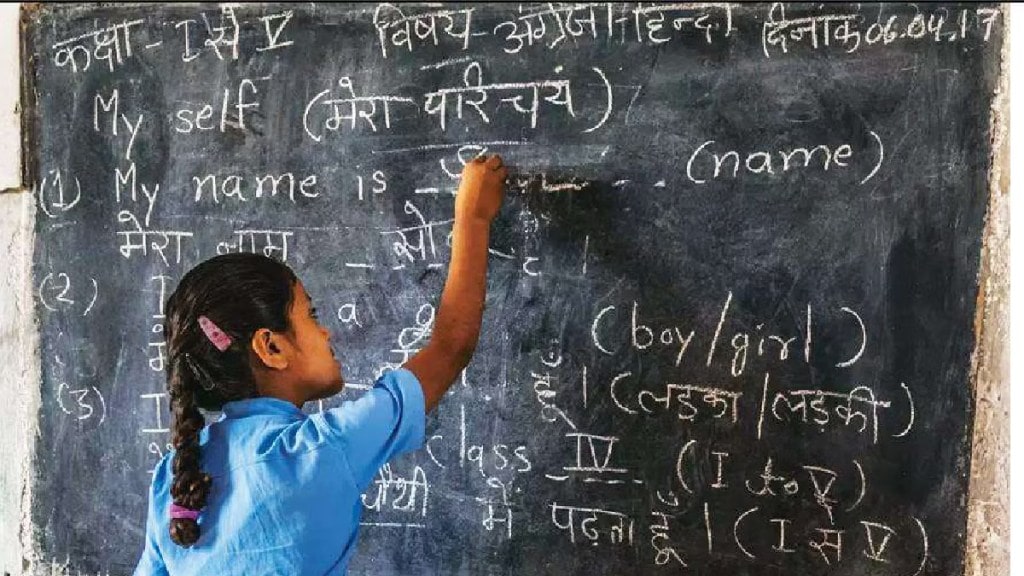 कक्षा - I से V विषय - अंग्रेजी - हिन्दी दिनांक 06.04.17
My self (मेरा परिचय)
(1) My name is (name)
मेरा नाम
(2) I a (boy/girl)
हूँ । (लड़का/लड़की)
(3) I class IV (I to V)
चौथी में पढ़ता हूँ । (I से V)